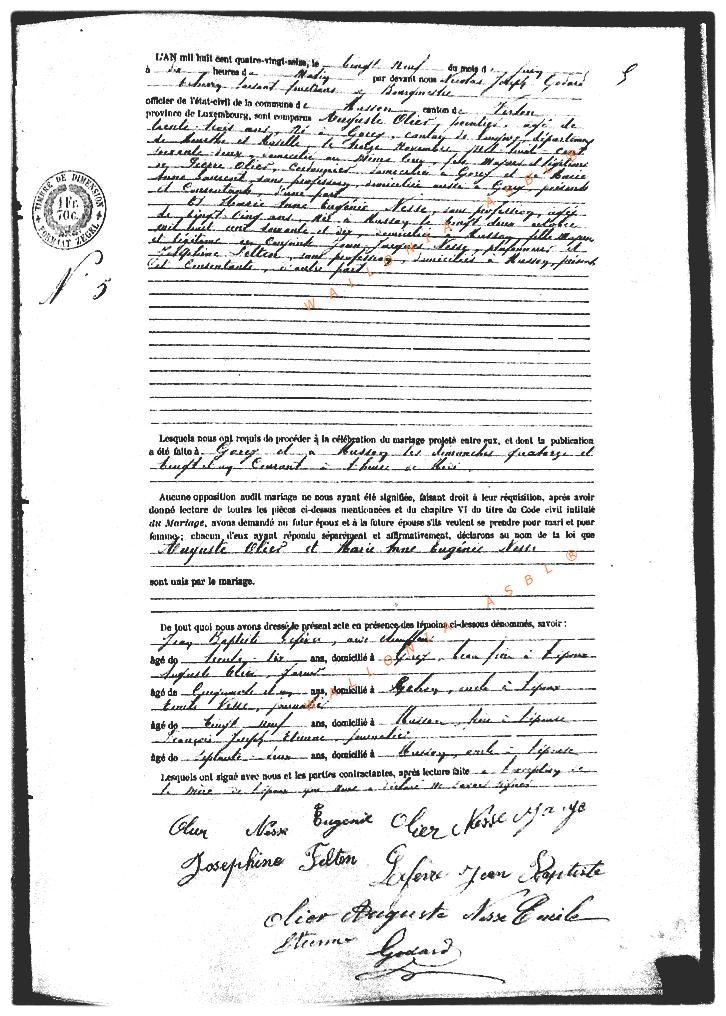 5
L'AN mil huit cent quatre-vingt-seize, le vingt neuf du mois de juin
à dix heures du Matin par devant nous Nicolas Joseph Godard
faisant fonctions de Bourgmestre
officier de l'état-civil de la commune de Musson canton de Virton
province de Luxembourg, sont comparus Auguste Olier, âgé de
trente trois ans, Né à Gorcy, canton de Longwy, département
de Meurthe et Moselle, le treize Novembre mil huit cent
soixante deux, domicilié au même lieu, fils Majeur et légitime
de Pierre Olier, domicilié à Gorcy et de Marie
Anne Laurent sans profession, domiciliée aussi à Gorcy, présents
et Consentants, d'une part
Et Marie Anne Eugénie Nesse, sans profession, âgée
de vingt Cinq ans, Née à Musson le vingt deux octobre
mil huit cent soixante et dix, domiciliée à Musson, fille Majeure
et légitime des Conjoints Jean Jacques Nesse, et
Joséphine Felten, sans profession, domiciliés à Musson, présents
et Consentants, d'autre part
TIMBRE DE DIMENSION
1 Fr.
70 c.
FORMAT ZEGEL
N° 5
WALLONIA ASBL ®
Lesquels nous ont requis de procéder à la célébration du mariage projeté entre eux, et dont la publication
a été faite à Gorcy et à Musson les dimanches quatorze et
vingt et un Courant à l'heure de Midi
Aucune opposition audit mariage ne nous ayant été signifiée, faisant droit à leur réquisition, après avoir
donné lecture de toutes les pièces ci-dessus mentionnées et du chapitre VI du titre du Code civil intitulé
du Mariage, avons demandé au futur époux et à la future épouse s'ils veulent se prendre pour mari et pour
femme; chacun d'eux ayant répondu séparément et affirmativement, déclarons au nom de la loi que
Auguste Olier et Marie Anne Eugénie Nesse
sont unis par le mariage.
WALLONIA ASBL ®
De tout quoi nous avons dressé le présent acte en présence des témoins ci-dessous dénommés, savoir :
Jean Baptiste Lefèvre,
âgé de trente six ans, domicilié à Gorcy, beau frère à l'époux
Auguste Olier,
âgé de Cinquante et un ans, domicilié à oncle à l'époux
Emile Nesse, journalier
âgé de Vingt neuf ans, domicilié à Musson, frère à l'épouse
François Joseph Etienne, journalier
âgé de Septante deux ans, domicilié à Musson, oncle à l'épouse
Lesquels ont signé avec nous et les parties contractantes, après lecture faite à l'exception de
la mère de l'époux que nous a déclaré ne savoir signer
Olier Nesse Eugénie Olier Nesse
Josephine Felten Lefèvre Jean Baptiste
Olier Auguste Nesse Emile
Etienne Godard